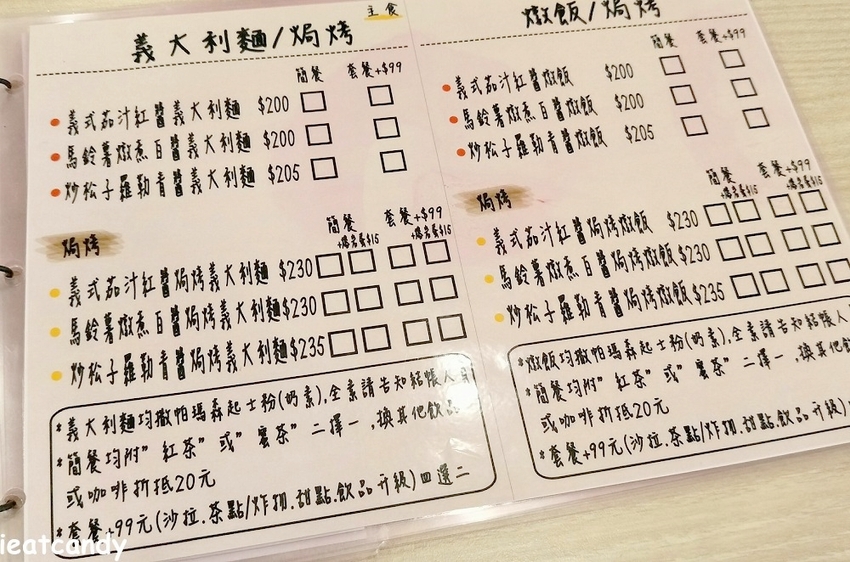 主食
義大利麵/焗烤
簡餐 套餐+$99
義式茄汁紅醬義大利麵 $200
馬鈴薯燉煮白醬義大利麵 $200
炒松子羅勒青醬義大利麵 $205
焗烤
簡餐 套餐+$99
+$15 +$15
義式茄汁紅醬焗烤義大利麵 $230
馬鈴薯燉煮白醬焗烤義大利麵 $230
炒松子羅勒青醬焗烤義大利麵 $235
*義大利麵均撒帕瑪森起士粉(奶素),全素請告知結帳人員
*簡餐均附"紅茶"或" 茶"二擇一,換其他飲品
或咖啡折抵20元
*套餐+99元(沙拉.茶點/炸物.甜點.飲品升級)四選二
燉飯/焗烤
簡餐 套餐+$99
義式茄汁紅醬燉飯 $200
馬鈴薯燉煮白醬燉飯 $200
炒松子羅勒青醬燉飯 $205
焗烤
簡餐 套餐+$99
+$15 +$15
義式茄汁紅醬焗烤燉飯 $230
馬鈴薯燉煮白醬焗烤燉飯 $230
炒松子羅勒青醬焗烤燉飯 $235
*燉飯均撒帕瑪森起士粉(奶素),全素請告知結帳人
*簡餐均附"紅茶"或" 茶"二擇一,換其他飲
或咖啡折抵20元
*套餐+99元(沙拉.茶點/炸物.甜點.飲品升級)四
ieatcandy